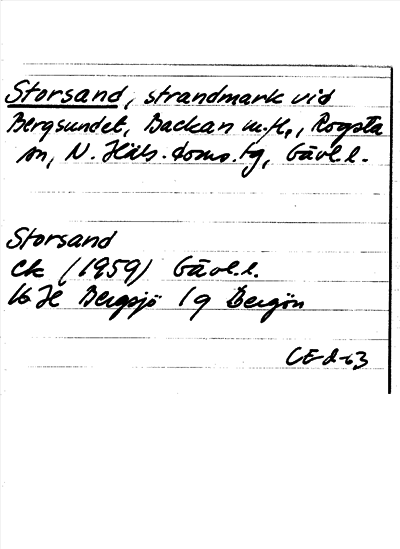 Storsand, strandmark vid
Bergsundet, Backan m.fl., Rogsta
sn, N. Häls. doms. tg, Gävl.l.
Storsand
Ek (1959) Gävl.l.
16 H Bergsjö 1 g Bergön
CE-d-63